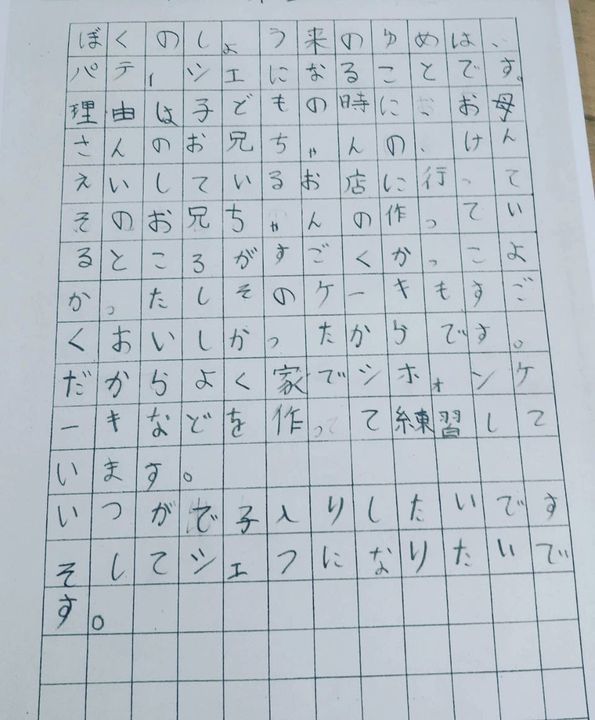 ぼくのしょう来のゆめは、
パティシエになることです。
理由は子どもの時にお母
さんのお兄ちゃんの、けん
えいしているお店に行って
そのお兄ちゃんの作ってい
るところがすごくかっこよ
かったしそのケーキもすご
くおいしかったからです。
だからよく家でシホォンケ
ーキなどを作って練習して
います。
いつがで子入りしたいです
そしてシェフになりたいで
す。